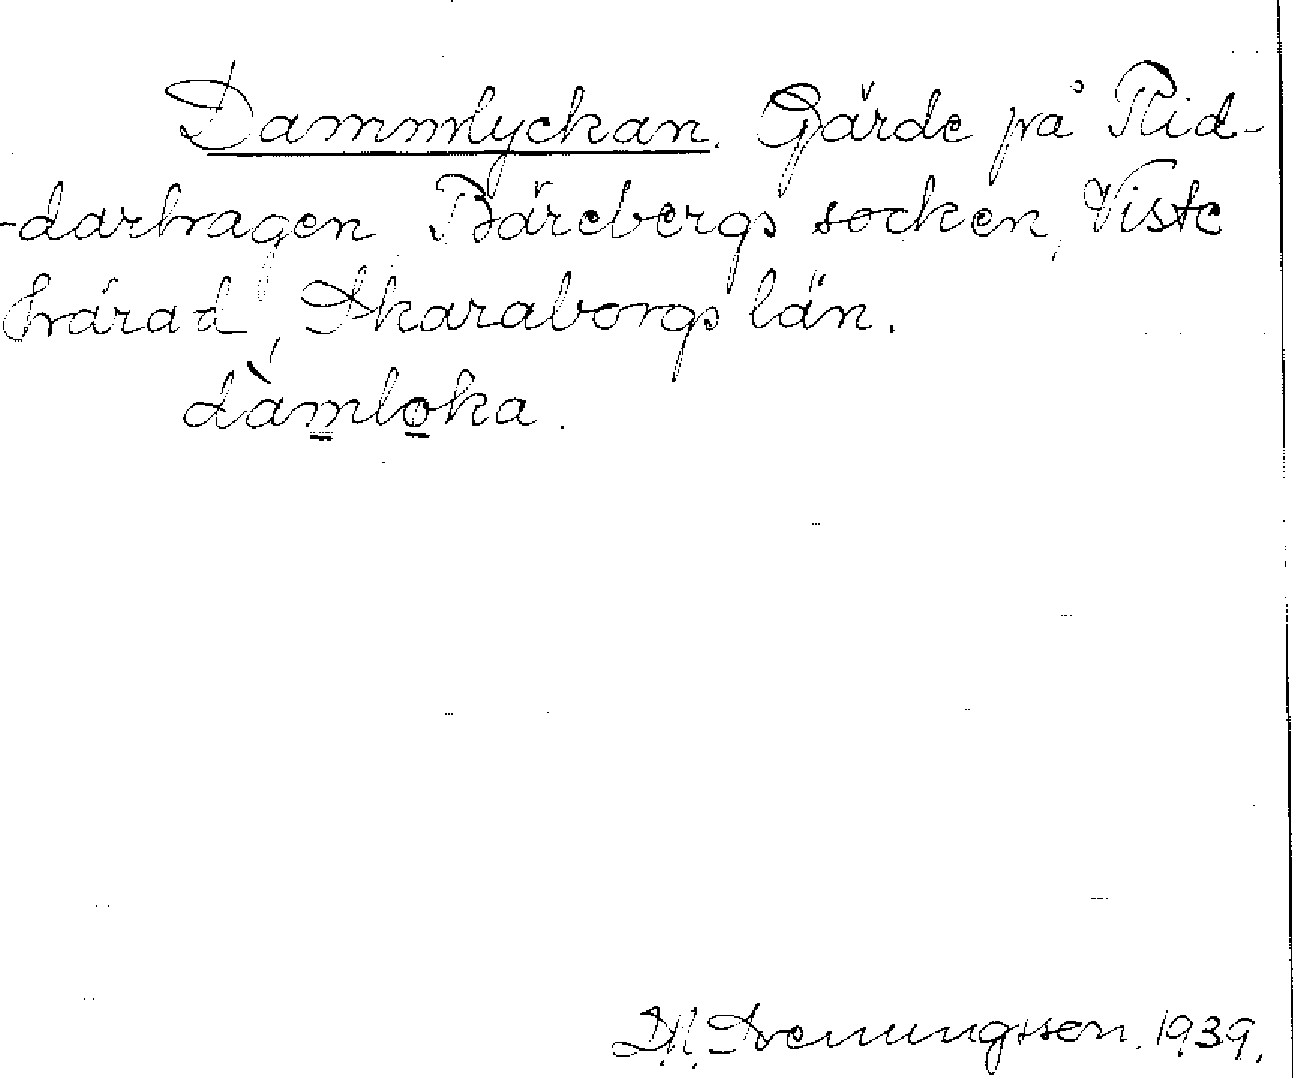 Dammlyckan. Gärde på Rid-
-darhagen Bärebergs socken, Viste
härad, Skaraborgs län.
dàmloka.
D.N. Svenungsson. 1939.